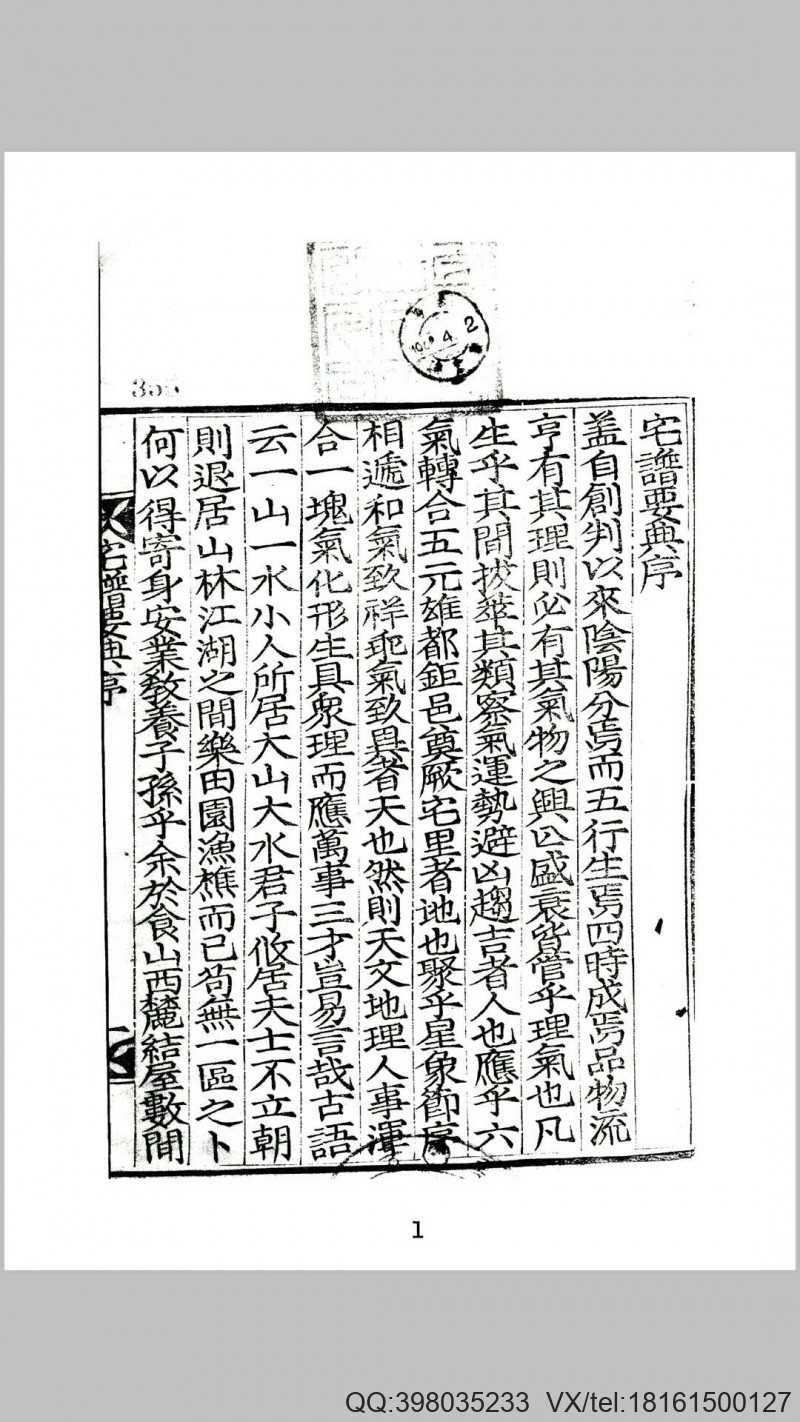 宅譜要典序
盖自創判以來陰陽分焉而五行生焉四時成焉品物流
亨有其理則必有其氣物之興亾盛衰皆管乎理氣也凡
生乎其間拔萃其類察氣運勢避凶趨吉者人也應乎六
氣轉合五元雄都鉅邑奠厥宅里者地也聚乎星象節序
相遞和氣致祥乖氣致異者天也然則天文地理人事渾
合一塊氣化形生具衆理而應萬事三才豈易言哉古語
云一山一水小人所居大山大水君子攸居夫士不立朝
則退居山林江湖之間樂田園漁樵而已苟無一區之卜
何以得寄身安業敎養子孫乎余於食山西麓結屋數間
宅譜要典序
1
QQ:398035233 VX/tel:18161500127